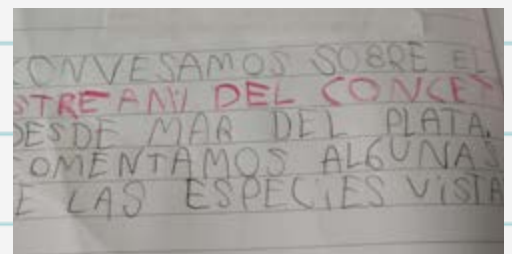 CONVESAMOS SOBRE EL
STREAMI DEL CONCET
DESDE MAR DEL PLATA.
COMENTAMOS ALGUNAS
E LAS ESPECIES VISTA